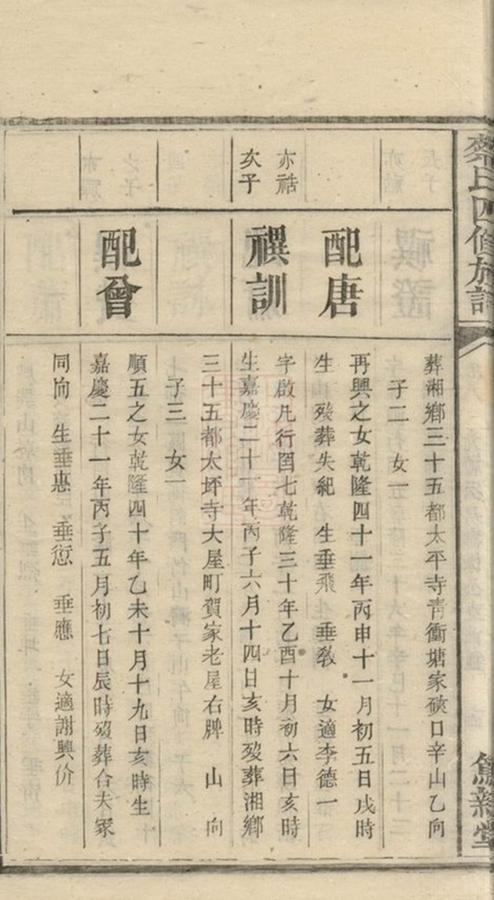 氏四修族譜
篤新堂
葬湘鄉三十五都太平寺青衝塘家硤口辛山乙向
子二 女一
配唐
再興之女乾隆四十一年丙申十一月初五日戌時
生 歿葬失紀 生垂飛 垂敎 女適李德一
亦祰
次子
禩訓
字啟凡行囼七乾隆三十年乙酉十月初六日亥時
生嘉慶二十一年丙子六月十四日亥時歿葬湘鄉
三十五都太坪寺大屋町賀家老屋右脾 山 向
子三 女一
配曾
順五之女乾隆四十年乙未十月十九日亥時生
嘉慶二十一年丙子五月初七日辰時歿葬合夫冢
同向 生垂惠 垂愆 垂應 女適謝興价